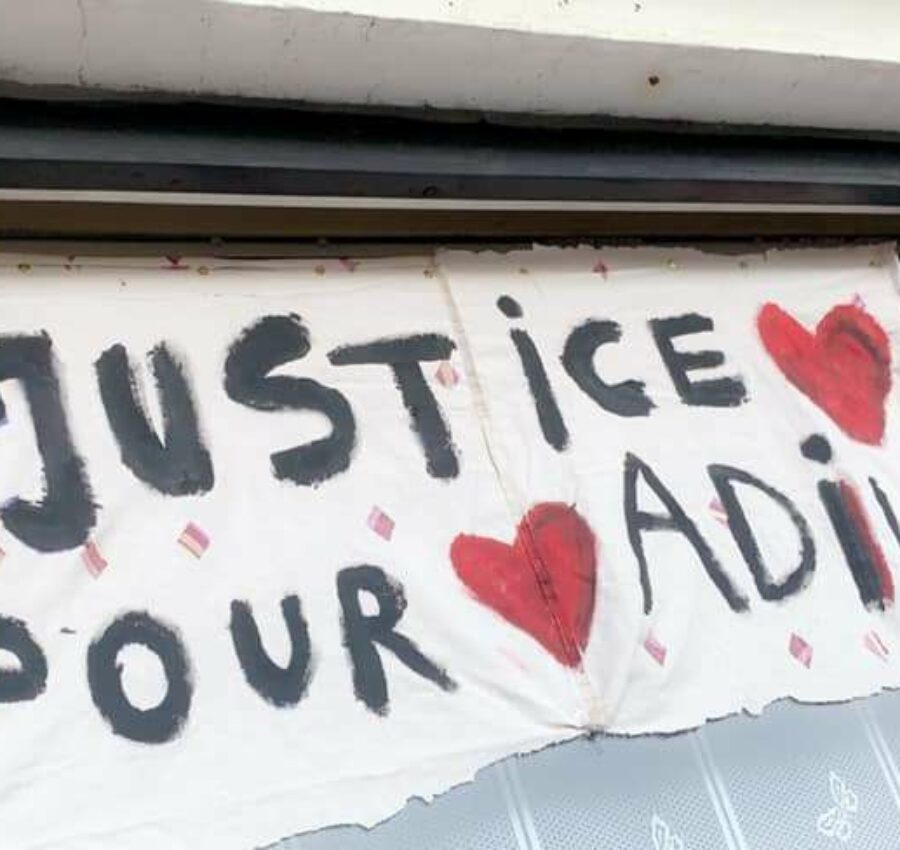 JUSTiCE
POUR ADi